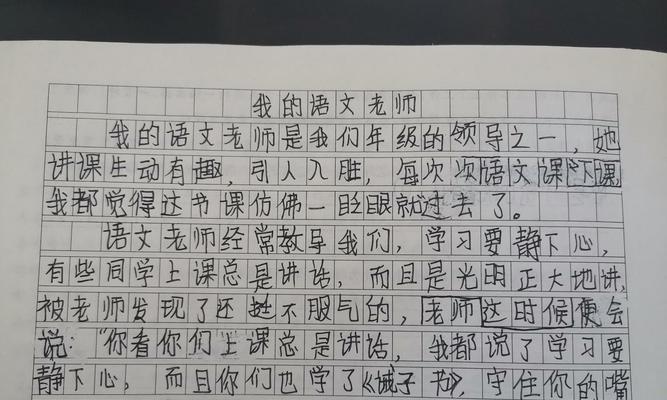 我的语文老师
我的语文老师是我们年级的领导之一，她
讲课生动有趣，引人入胜，每次次语文课下课，
我都觉得这书课仿佛一眨眼就过去了。
语文老师经常教导我们，学习要静下心，
有些同学上课总是讲话，而且是光明正大地讲，
被老师发现了还挺不服气的，老师这时候便会
说：“你看你们上课总是讲话，我都说了学习要
静下心，而且你们也学了《诫子书》，守住你的嘴